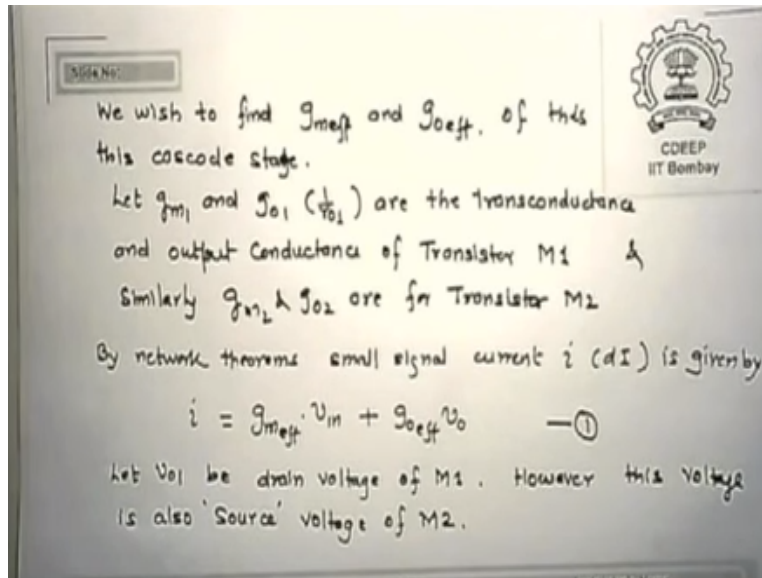 Slide No:
CDEEP
IIT Bombay
We wish to find gmeff and goeff. of this
this cascode stage.
Let gm1 and go1 (1/ro1) are the Transconductance
and output Conductance of Transistor M1 &
Similarly gm2 & go2 are for Transistor M2
By network theorems small signal current i (dI) is given by
i = gmeff · vin + goeff vo —①
Let vo1 be drain voltage of M1. However this voltage
is also 'Source' voltage of M2.